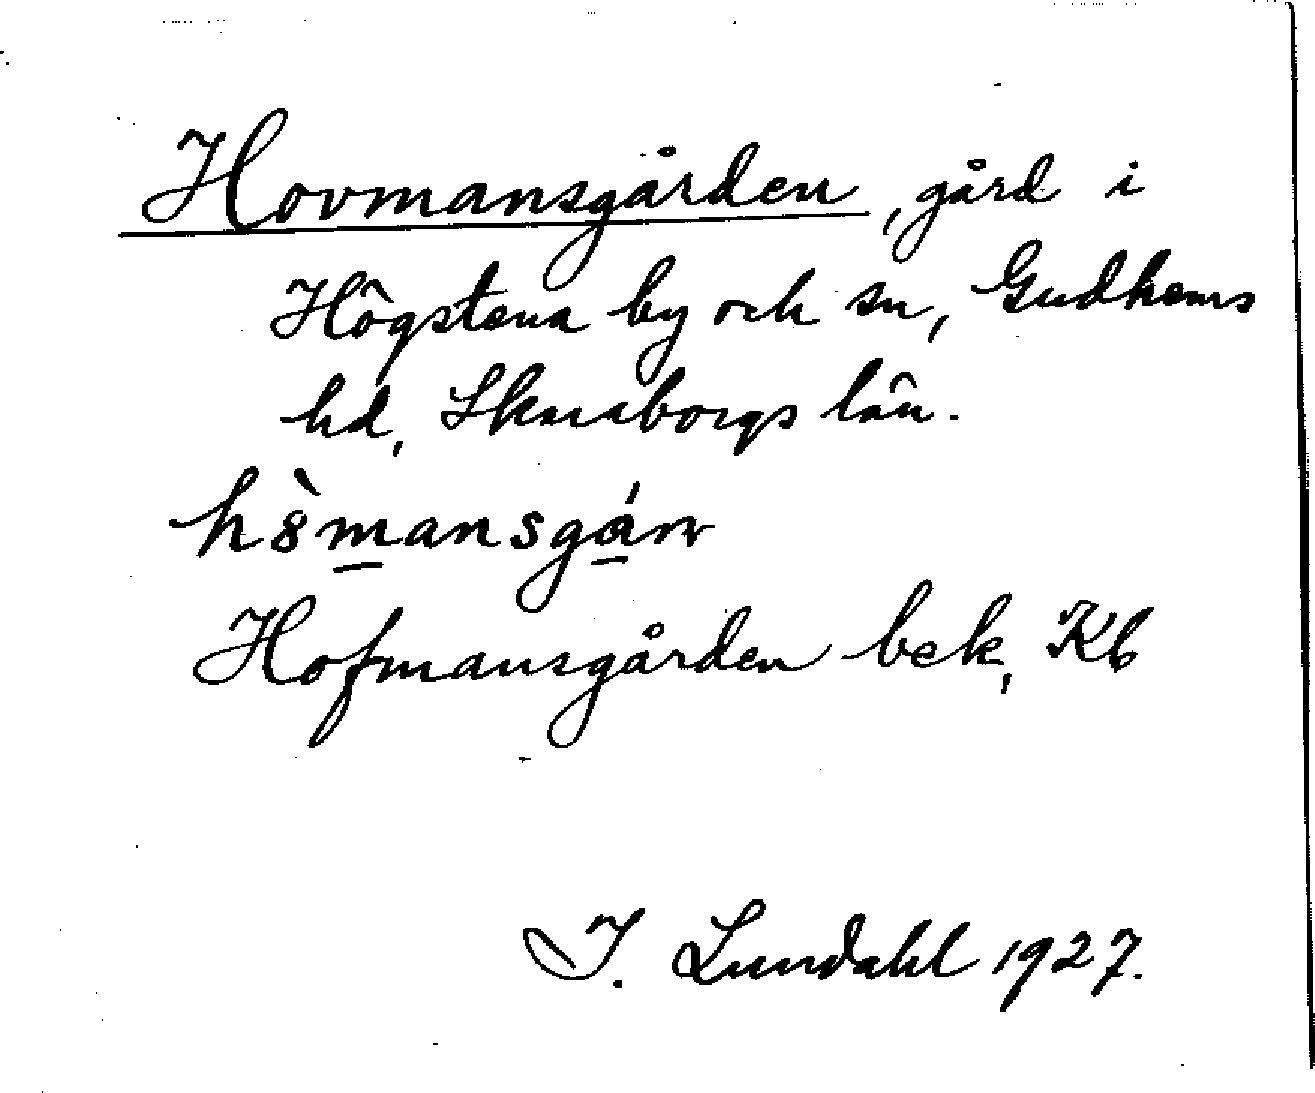 Hovmansgården, gård i
Högstena by och sn, Gudhems
hd, Skaraborgs län.
hò̤mansgáɳ
Hofmansgården bek, Kb
I. Lundahl 1927.